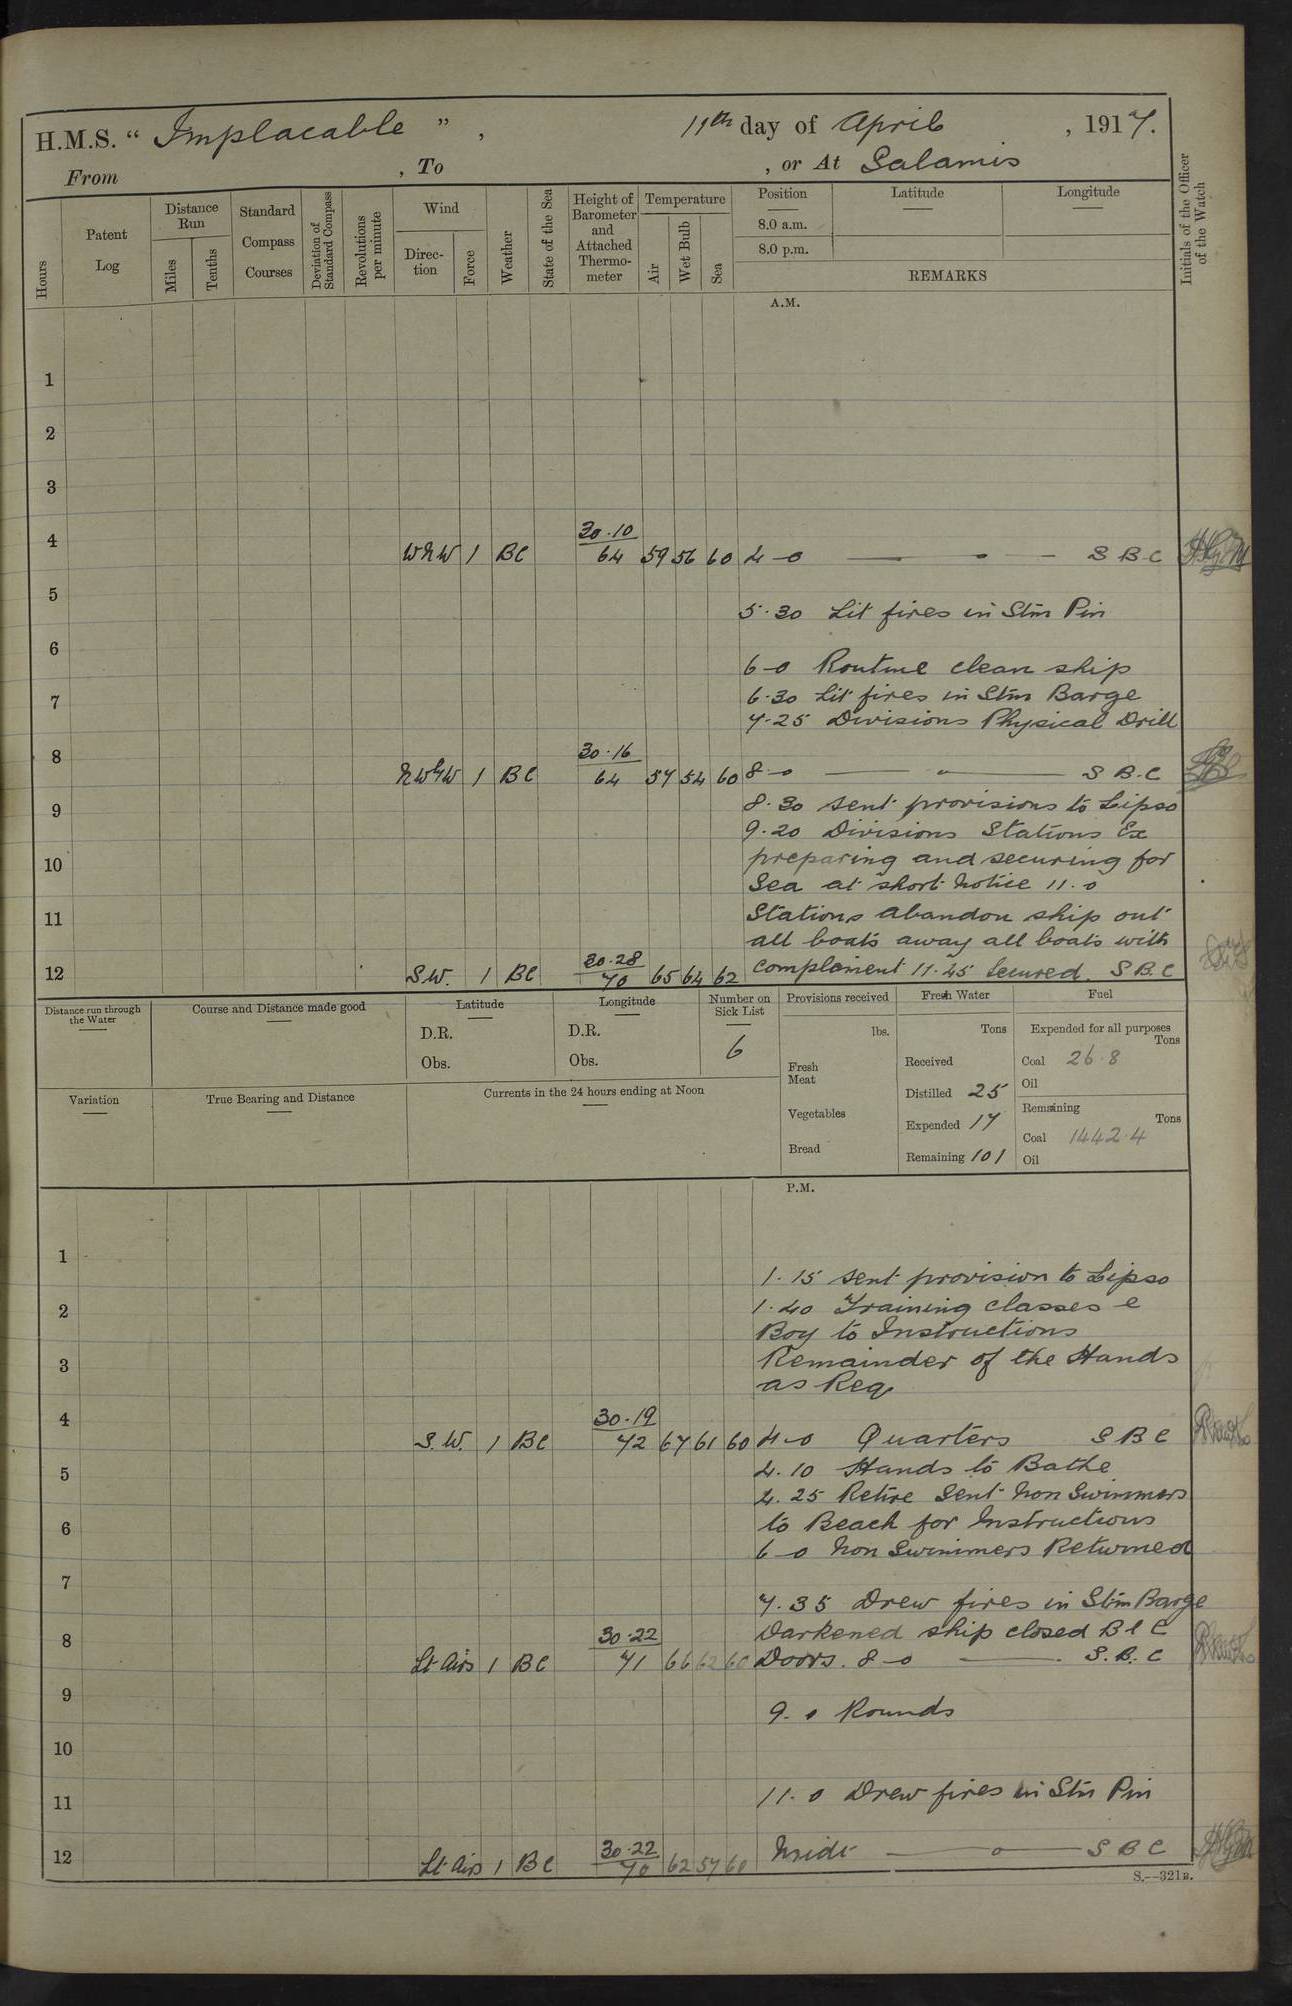 H.M.S. " Implacable " , 11th day of April , 1917.
From , To , or At Salamis
Hours
Patent Log
Distance Run
Miles
Tenths
Standard Compass Courses
Deviation of Standard Compass
Revolutions per minute
Wind
Direction
Force
Weather
State of the Sea
Height of Barometer and Attached Thermometer
Temperature
Air
Wet Bulb
Sea
Position
8.0 a.m.
8.0 p.m.
Latitude
Longitude
REMARKS
Initials of the Officer of the Watch
A.M.
1
2
3
4
30.10
WNW 1 BC 64 59 56 60 4-0 — o — S B.C
5
5.30 Lit fires in Stm Pin
6
6-0 Routine clean ship
6.30 Lit fires in Stm Barge
7
7.25 Divisions Physical Drill
8
30.16
NWbW 1 BC 64 57 54 60 8-0 — o — S B.C
8.30 sent provisions to Lipso
9
9.20 Divisions Stations Ex
preparing and securing for
10
Sea at short notice 11.0
Stations abandon ship out
11
all boats away all boats with
12
30.28
S.W. 1 BC 70 65 64 62 compliment 11.45 Secured. S B.C
Distance run through the Water
Course and Distance made good
Latitude
D.R.
Obs.
Longitude
D.R.
Obs.
Number on Sick List
6
Provisions received
lbs.
Fresh Meat
Vegetables
Bread
Fresh Water
Tons
Received
Distilled 25
Expended 17
Remaining 101
Fuel
Expended for all purposes
Tons
Coal 26.8
Oil
Remaining
Tons
Coal 1442.4
Oil
Variation
True Bearing and Distance
Currents in the 24 hours ending at Noon
P.M.
1
1.15 sent provision to Lipso
2
1.40 Training classes e
Boy to Instructions
3
Remainder of the Hands
as Req
4
30.19
S.W. 1 BC 72 67 61 60 4-0 Quarters S B C
5
4.10 Hands to Bathe
4.25 Retire Sent Non Swimmers
6
to Beach for Instructions
6-0 Non Swimmers Returned
7
7.35 Drew fires in Stm Barge
8
30.22
Darkened ship closed B & C
Lt Airs 1 BC 71 66 62 60 Doors. 8-0 — S.B.C
9
9.0 Rounds
10
11
11.0 Drew fires in Stm Pin
12
30.22
Lt Airs 1 BC 70 62 57 60 Midt — o — S B C
S.--321B.